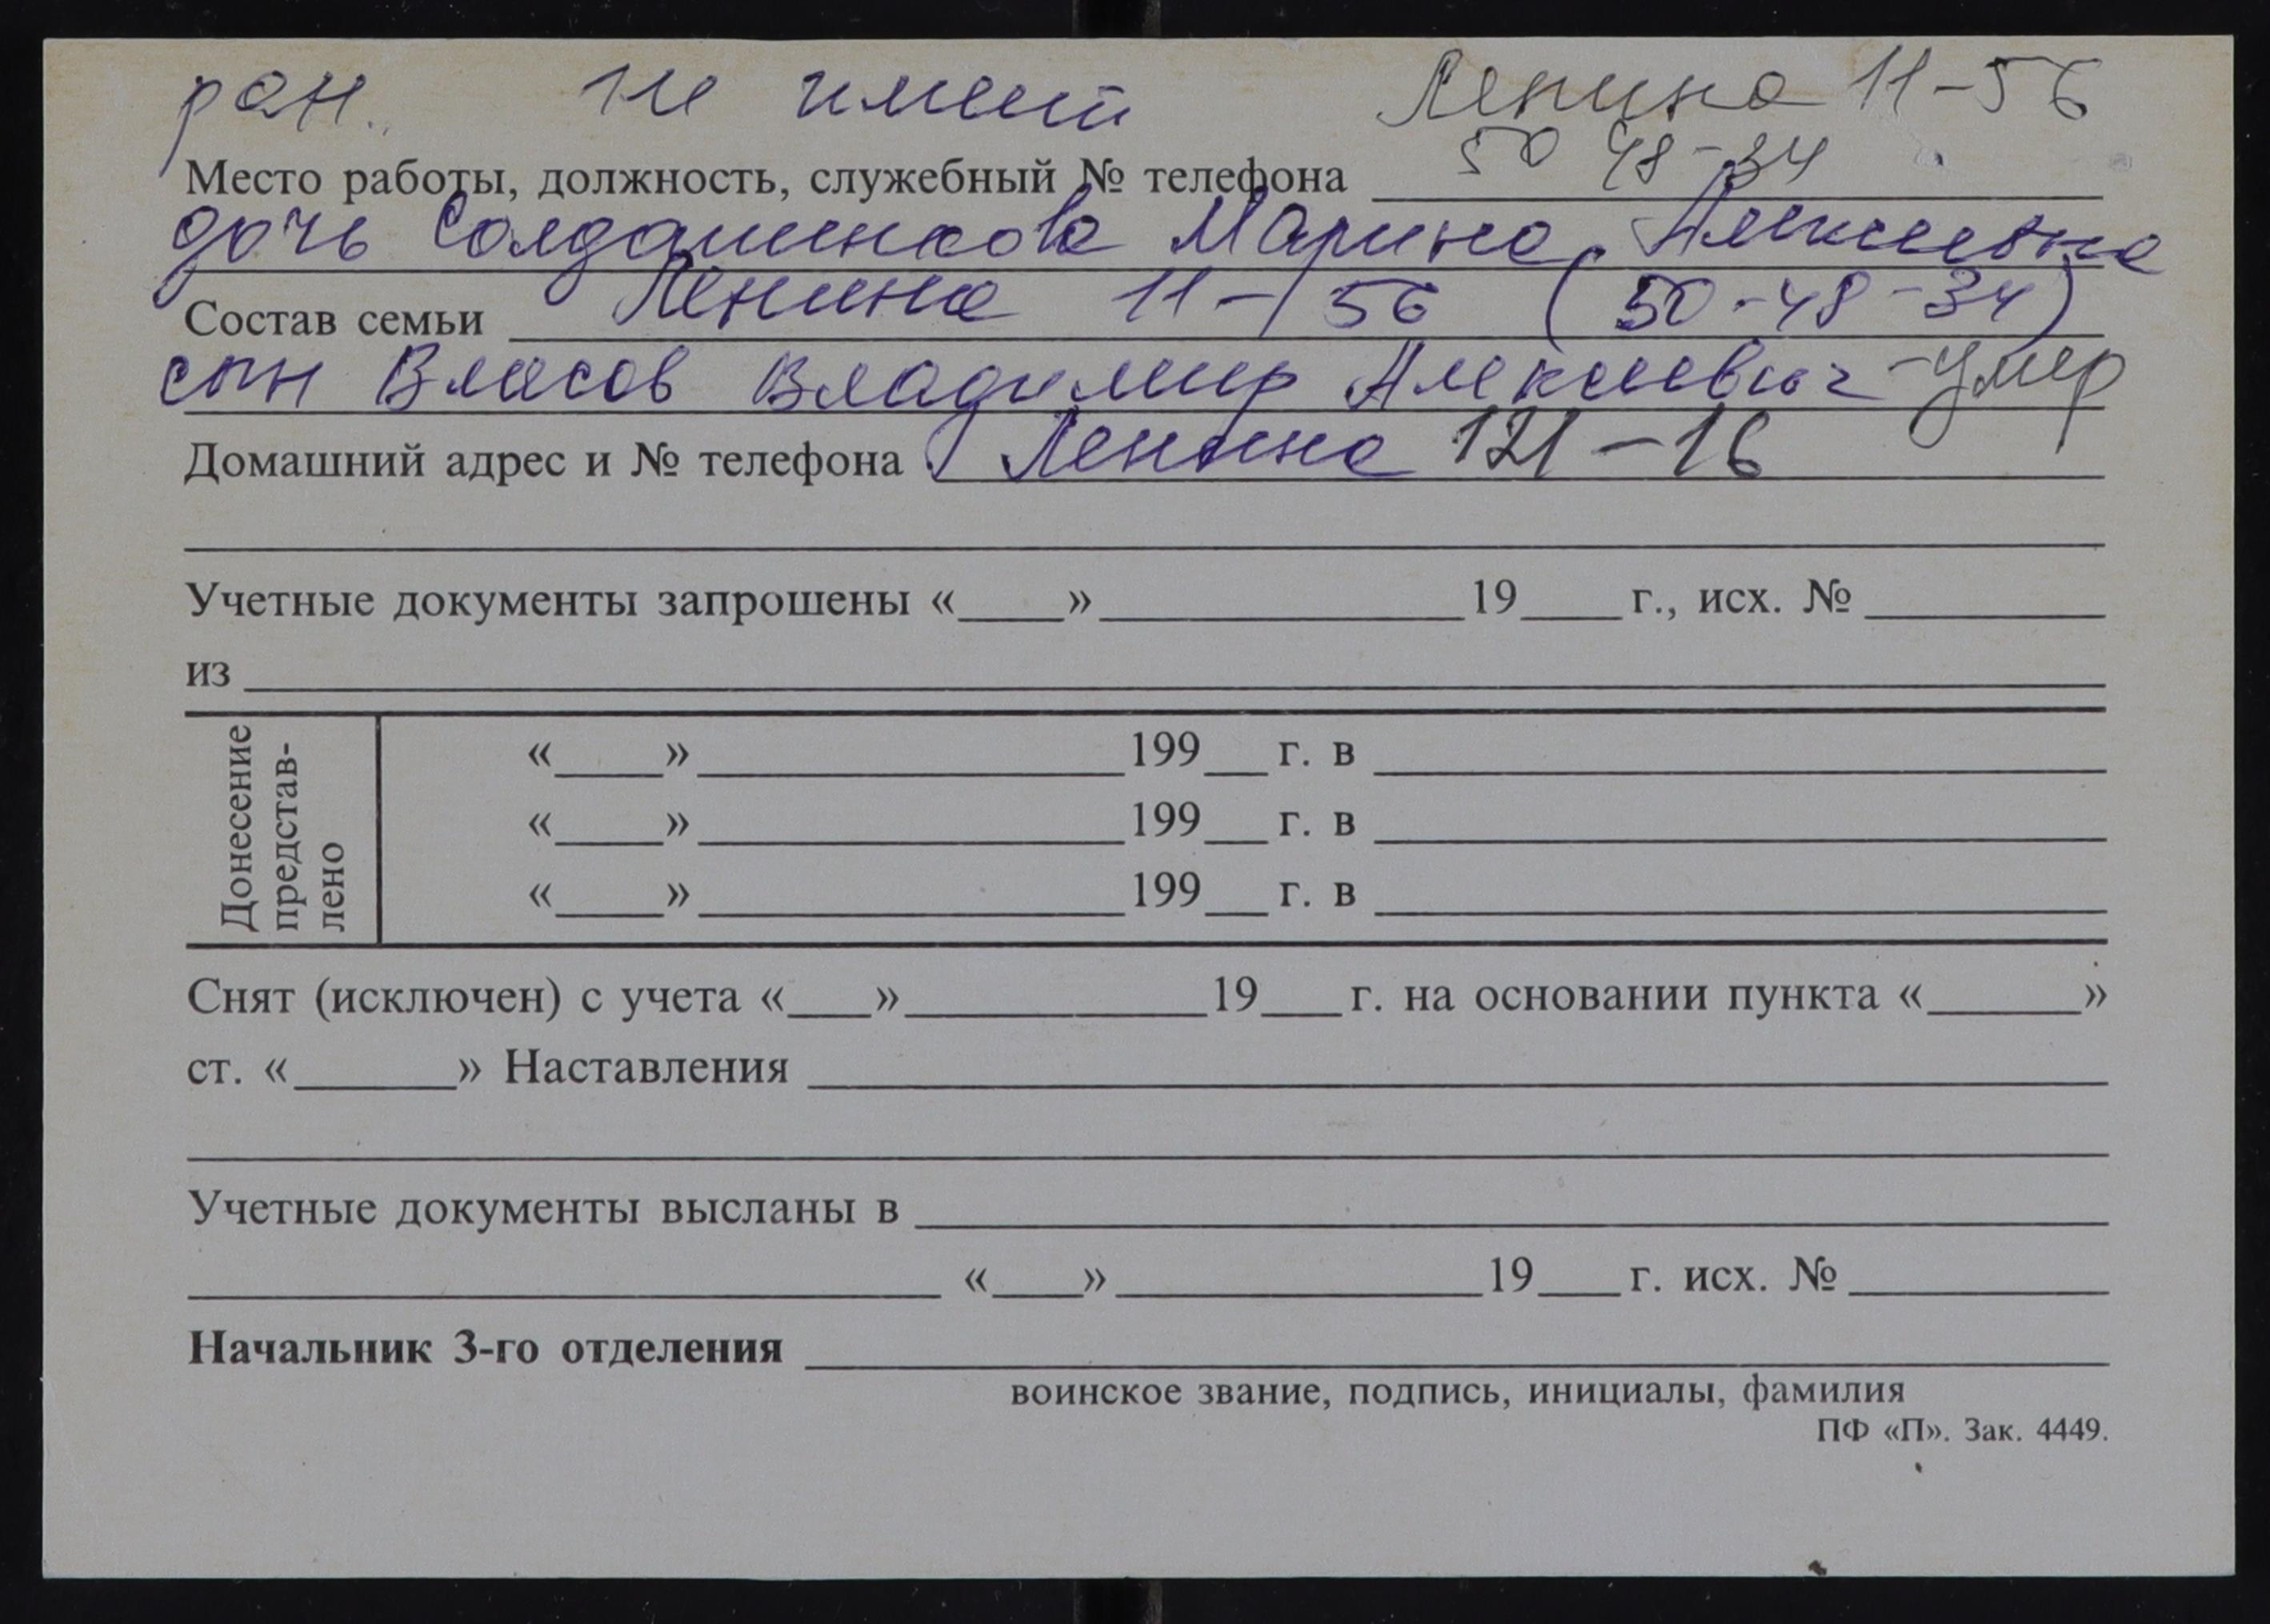 ран. не имеет Ленина 11-56
50 48-34
Место работы, должность, служебный № телефона
дочь Солдатенкова Марина Алексеевна
Состав семьи Ленина 11-56 (50-48-34)
сын Власов Владимир Алексеевич - умер
Домашний адрес и № телефона Ленина 121-16
Учетные документы запрошены «____»____________19____г., исх. №________
из
Донесение представ-
лено
«____»____________199___г. в
«____»____________199___г. в
«____»____________199___г. в
Снят (исключен) с учета «___»____________19___г. на основании пункта «______»
ст. «______» Наставления
Учетные документы высланы в
«___»____________19___г. исх. №________
Начальник 3-го отделения
воинское звание, подпись, инициалы, фамилия
ПФ «П». Зак. 4449.